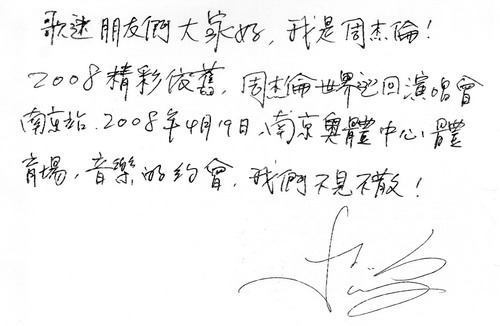 歌迷朋友們大家好，我是周杰倫！
2008精彩依舊，周杰倫世界巡回演唱會
南京站．2008年4月19日、南京奧體中心體
育場，音樂的約會，我們不見不散！